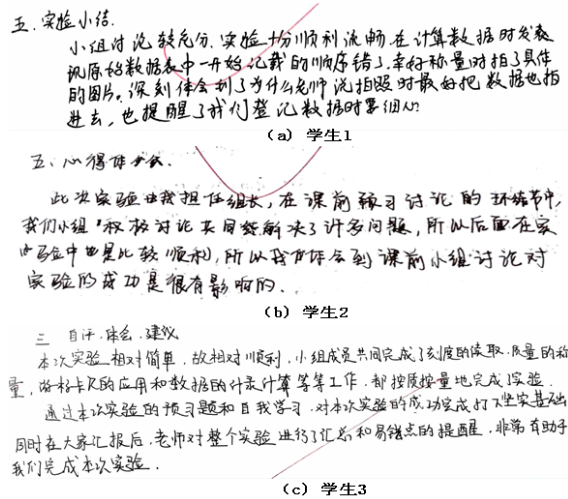 五、实验小结.
小组讨论较充分、实验十分顺利流畅.在计算数据时发表
现原始数据表中一开始记载的顺序错了.幸好称量时拍了具体
的图片。深刻体会到了为什么老师说拍照时最好把数据也拍
进去,也提醒了我们登记数据时要细心
(a) 学生1
五、心得体会.
此次实验由我担任组长,在课前预习讨论的环节中,
我们小组积极讨论共同解决了许多问题,所以后面在实
验中也是比较顺利,所以我体会到课前小组讨论对
实验的成功是很有影响的.
(b) 学生2
三 自评.体会.建议
本次实验相对简单,故相对顺利.小组成员共同完成了刻度的读取.质量的称
量,游标卡尺的应用和数据的计录计算等等工作.都按质按量地完成了实验.
通过本次实验的预习题和自我学习.对本次实验的成功完成打下坚实基础
同时在大家汇报后,老师对整个实验进行了汇总和易错点的提醒,非常有助于
我们完成本次实验.
(c) 学生3